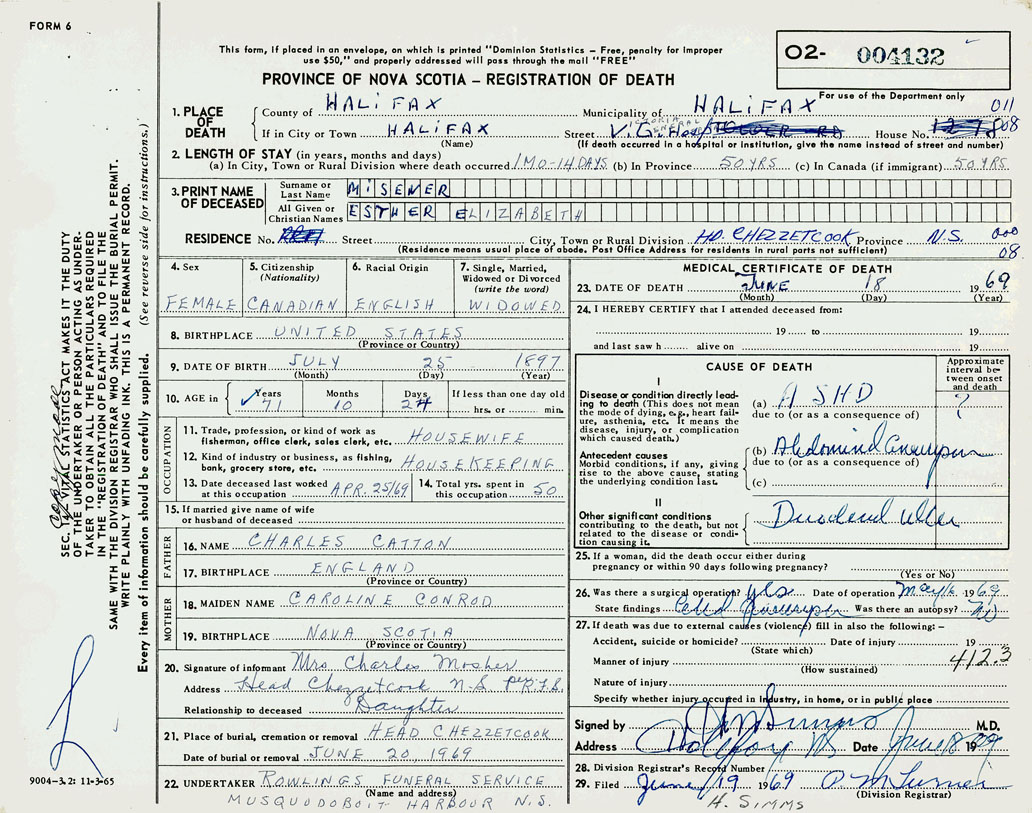 FORM 6
This form, if placed in an envelope, on which is printed "Dominion Statistics – Free, penalty for improper
use $50," and properly addressed will pass through the mail "FREE"
O2- 004132
PROVINCE OF NOVA SCOTIA – REGISTRATION OF DEATH
For use of the Department only
1. PLACE OF DEATH
County of HALIFAX Municipality of HALIFAX 011
If in City or Town HALIFAX Street V.G. Hosp VICTORIA GENERAL House No. 808
(Name) (If death occurred in a hospital or institution, give the name instead of street and number)
2. LENGTH OF STAY (in years, months and days)
(a) In City, Town or Rural Division where death occurred 1 MO-14 DAYS (b) In Province 50 YRS (c) In Canada (if immigrant) 50 YRS
3. PRINT NAME OF DECEASED
Surname or Last Name MISENER
All Given or Christian Names ESTHER ELIZABETH
RESIDENCE No. Street City, Town or Rural Division HD. CHEZZETCOOK Province N.S. 000
(Residence means usual place of abode. Post Office Address for residents in rural parts not sufficient) 08
4. Sex
FEMALE
5. Citizenship
(Nationality)
CANADIAN
6. Racial Origin
ENGLISH
7. Single, Married,
Widowed or Divorced
(write the word)
WIDOWED
8. BIRTHPLACE UNITED STATES
(Province or Country)
9. DATE OF BIRTH JULY 25 1897
(Month) (Day) (Year)
10. AGE in Years Months Days If less than one day old
71 10 24 hrs. or min.
OCCUPATION
11. Trade, profession, or kind of work as
fisherman, office clerk, sales clerk, etc. HOUSEWIFE
12. Kind of industry or business, as fishing,
bank, grocery store, etc. HOUSEKEEPING
13. Date deceased last worked
at this occupation APR. 25/69
14. Total yrs. spent in
this occupation 50
15. If married give name of wife
or husband of deceased
FATHER
16. NAME CHARLES CATTON
17. BIRTHPLACE ENGLAND
(Province or Country)
MOTHER
18. MAIDEN NAME CAROLINE CONROD
19. BIRTHPLACE NOVA SCOTIA
(Province or Country)
20. Signature of informant Mrs Charles Mosher
Address Head Chezzetcook N-S per R.F.S.
Relationship to deceased Daughter
21. Place of burial, cremation or removal HEAD CHEZZETCOOK
Date of burial or removal JUNE 20, 1969
22. UNDERTAKER ROWLINGS FUNERAL SERVICE
(Name and address)
MUSQUODOBOIT HARBOUR N.S.
MEDICAL CERTIFICATE OF DEATH
23. DATE OF DEATH JUNE 18 1969
(Month) (Day) (Year)
24. I HEREBY CERTIFY that I attended deceased from:
19 to 19
and last saw h alive on 19
CAUSE OF DEATH
Approximate
interval be-
tween onset
and death
I
Disease or condition directly lead-
ing to death (This does not mean
the mode of dying, e.g., heart fail-
ure, asthenia, etc. It means the
disease, injury, or complication
which caused death.)
(a) ASHD ?
due to (or as a consequence of)
Antecedent causes
Morbid conditions, if any, giving
rise to the above cause, stating
the underlying condition last.
(b) Abdominal Aneurysm
due to (or as a consequence of)
(c)
II
Other significant conditions
contributing to the death, but not
related to the disease or condi-
tion causing it.
Duodenal ulcer
25. If a woman, did the death occur either during
pregnancy or within 90 days following pregnancy?
(Yes or No)
26. Was there a surgical operation? yes Date of operation May 16 1969
State findings Abd Aneurysm Was there an autopsy? No
27. If death was due to external causes (violence) fill in also the following: –
Accident, suicide or homicide? Date of injury 19
(State which) 412.3
Manner of injury
(How sustained)
Nature of injury
Specify whether injury occurred in Industry, in home, or in public place
Signed by M.D.
Address Date June 18 1969
28. Division Registrar's Record Number
29. Filed June 19 1969
(Division Registrar)
H. SIMMS
SEC. 14, VITAL STATISTICS ACT MAKES IT THE DUTY
OF THE UNDERTAKER OR PERSON ACTING AS UNDER-
TAKER TO OBTAIN ALL THE PARTICULARS REQUIRED
IN THE "REGISTRATION OF DEATH" AND TO FILE THE
SAME WITH THE DIVISION REGISTRAR WHO SHALL ISSUE THE BURIAL PERMIT.
WRITE PLAINLY WITH UNFADING INK. THIS IS A PERMANENT RECORD.
Every item of information should be carefully supplied. (See reverse side for instructions.)
9004–3.2: 11-3-65